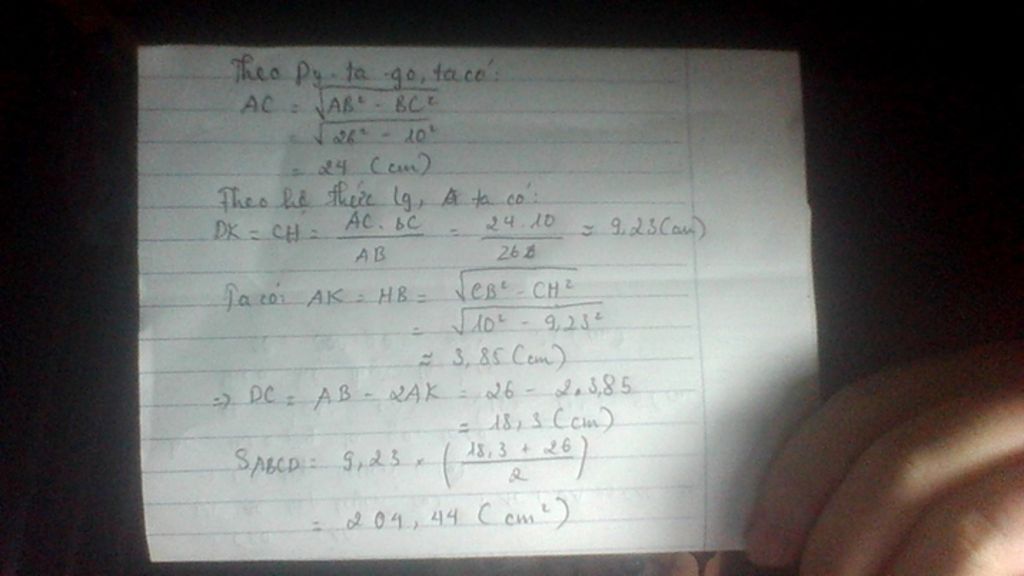 Theo Py-ta-go, ta có:
AC = √AB² - BC²
= √26² - 10²
= 24 (cm)
Theo hệ thức lg, ta có:
DK = CH = AC. BC / AB = 24.10 / 26 ≈ 9,23(cm)
Ta có: AK = HB = √CB² - CH²
= √10² - 9,23²
≈ 3,85 (cm)
=> DC = AB - 2AK = 26 - 2.3,85
= 18,3 (cm)
SABCD = 9,23 . (18,3 + 26 / 2)
= 204,44 (cm²)